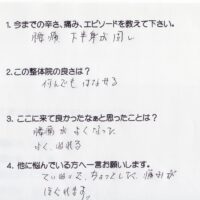 1. 今までの辛さ、痛み、エピソードを教えて下さい。
腰痛 下半身が
2.この整体院の良さは？
何んでも はなせる
3. ここに来て良かったなぁと思ったことは？
腰痛が よくなった
よく
4. 他に悩んでいる方へ一言お願いします。
痛みが
ほぐれます。